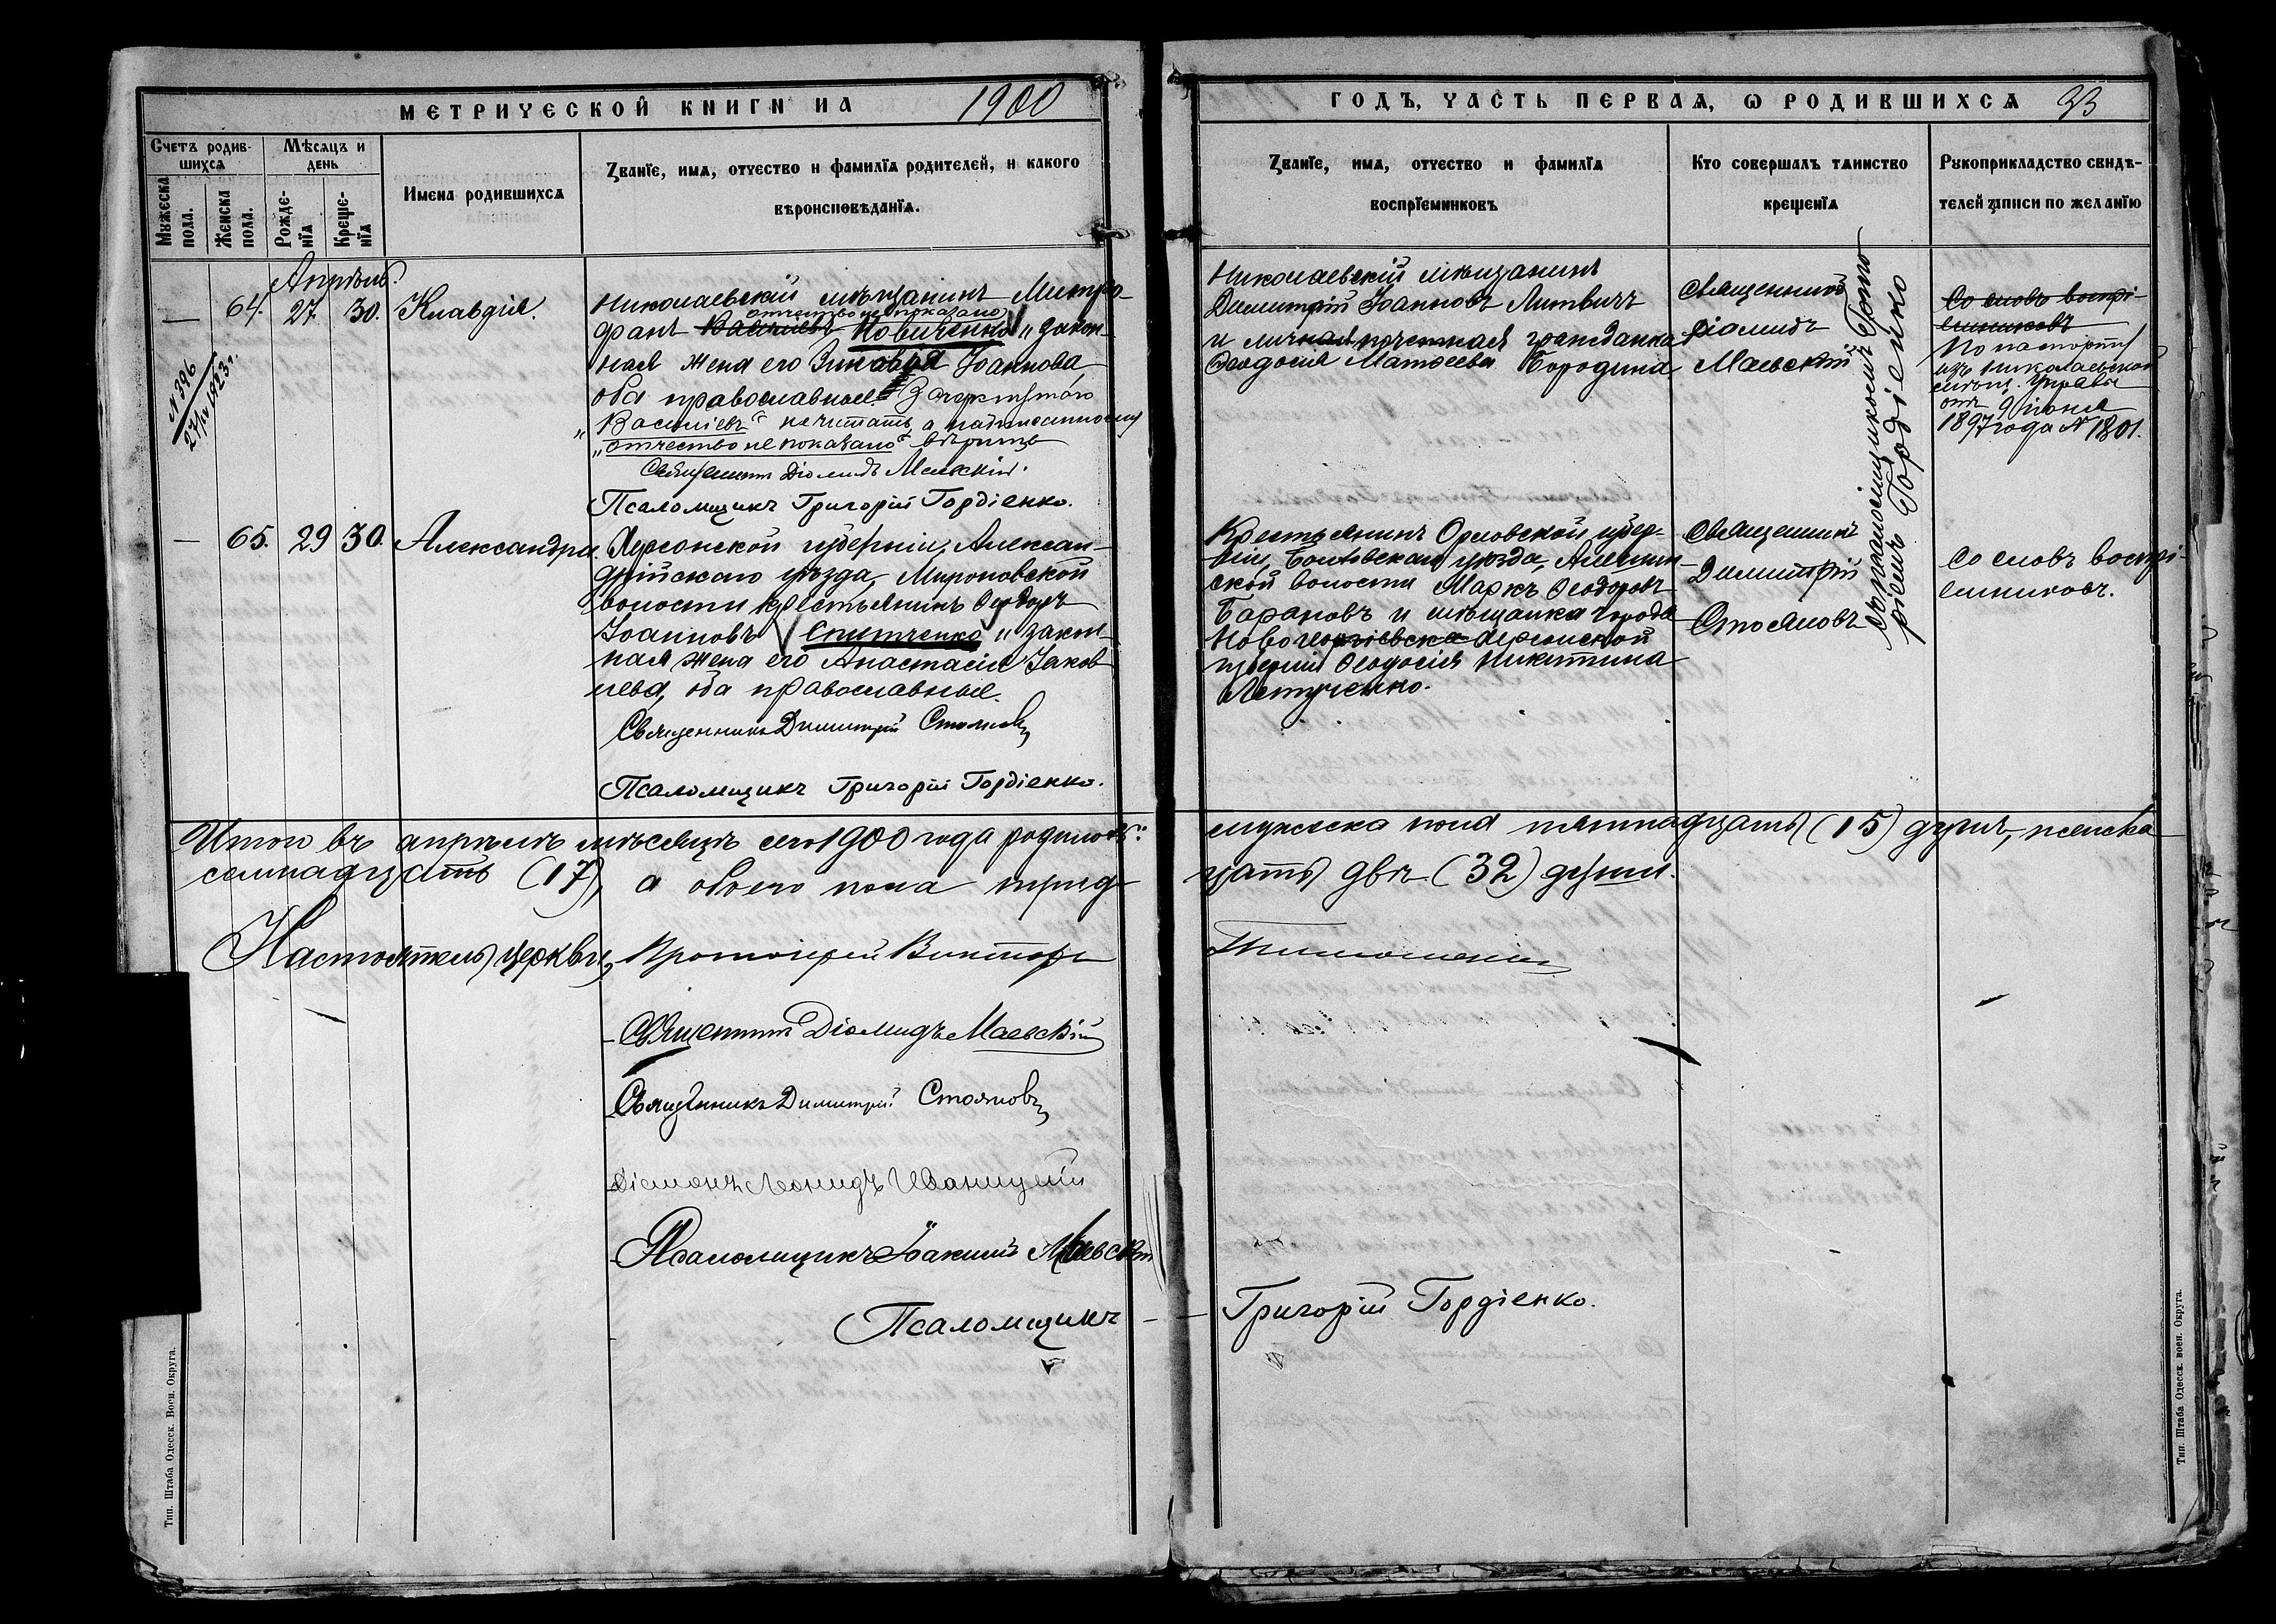 МЕТРИЧЕСКОЙ КНИГИ НА 1900
Счетъ родив-
шихся
Мѣсяцъ и
день
Мужеска
пола.
Женска
пола.
Рожде-
нія
Креще-
нія
Имена родившихся
Званіе, имя, отчество и фамилія родителей, и какого
вѣроисповѣданія.
Апрѣль.
— 64. 27. 30. Клавдія.
№ 396
27/IV 1923 г.
Николаевскій мѣщанинъ Митро-
отчество не показано
фанъ Васильевъ Новиченко и закон-
ная жена его Зиновія Іоаннова,
оба православные. Зачеркнутаго
„Васильевъ" не читать, а надписанному
„отчество не показано" вѣрить
Священникъ Діомидъ Маевскій.
Псаломщикъ Григорій Гордіенко.
— 65. 29 30. Александра.
Херсонской губерніи, Алексан-
дрійскаго уѣзда, Мироновской
волости крестьянинъ Ѳеодоръ
Іоанновъ Снитченко и закон-
ная жена его Анастасія Іаков-
лева, оба православные.
Священникъ Димитрій Стояновъ
Псаломщикъ Григорій Гордіенко.
Итого въ апрѣлѣ мѣсяцѣ сего 1900 года родилось:
семнадцать (17), а обоего пола трид-
Настоятель церкви, Протоіерей Викторъ
Священникъ Діомидъ Маевскій
Священникъ Димитрій Стояновъ
Діаконъ Леонидъ Иваницкій
Псаломщикъ Іоакимъ Маевскій
Псаломщикъ —
Тип. Штаба Одесск. Воен. Округа.
ГОДЪ, ЧАСТЬ ПЕРВАЯ, О РОДИВШИХСЯ 33
Званіе, имя, отчество и фамилія
воспріемниковъ
Кто совершалъ таинство
крещенія
Рукоприкладство свидѣ-
телей записи по желанію
Николаевскій мѣщанинъ
Димитрій Іоанновъ Литвичъ
и личная почетная гражданка
Ѳеодосія Матѳеева Бородина
Священникъ
Діомидъ
Маевскій
съ псаломщикомъ Григо-
ріемъ Гордіенко
Со словъ воспрі-
емниковъ
По паспорту
изъ Николаевской
мѣщ. Управы
отъ 9 іюня
1897 года № 1801.
Крестьянинъ Орловской губер-
ніи, Болховскаго уѣзда,
ской волости Маркъ Ѳеодоровъ
Барановъ и мѣщанка города
Новогеоргіевска Херсонской
губерніи Ѳеодосія Никитина
Летученко.
Священникъ
Димитрій
Стояновъ
Со словъ воспрі-
емниковъ.
мужеска пола пятнадцать (15) душъ, женска
цать двѣ (32) души.
Григорій Гордіенко.
Тип. Штаба Одесск. воен. Округа.